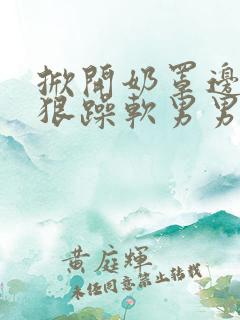 掀開奶罩邊
狠躁軟男男
黃庭輝
未经同意禁止转载